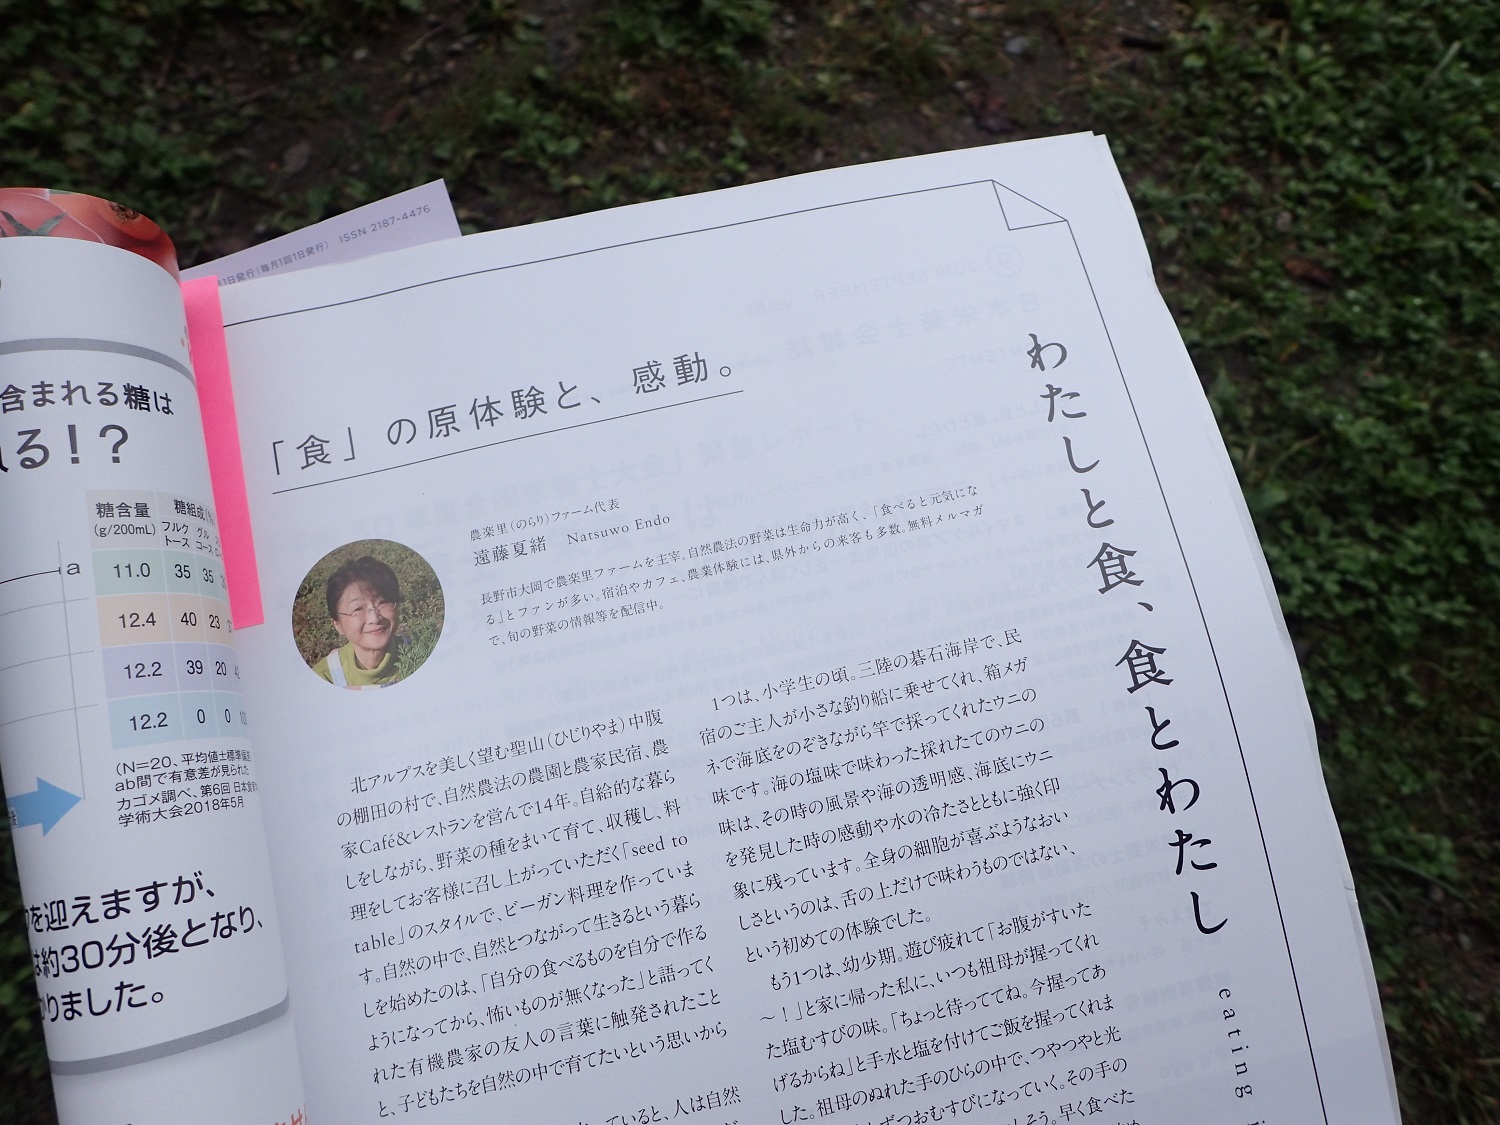 1日発行(毎月1回1日発行) ISSN 2187-4476
含まれる糖は
る!?
糖含量
(g/200mL)
糖組成(%)
フルク
トース
グル
コース
a
11.0 35 35
12.4 40 23
12.2 39 20
12.2 0 0
(N=20、平均値±標準偏差
ab間で有意差が見られた
カゴメ調べ、第6回 日本
学術大会2018年5月
を迎えますが、
は約30分後となり、
りました。
「食」の原体験と、感動。
農楽里(のらり)ファーム代表
遠藤夏緒 Natsuwo Endo
長野市大岡で農楽里ファームを主宰。自然農法の野菜は生命力が高く、「食べると元気にな
る」とファンが多い。宿泊やカフェ、農業体験には、県外からの来客も多数。無料メルマガ
で、旬の野菜の情報等を配信中。
わたしと食、食とわたし
eating
北アルプスを美しく望む聖山(ひじりやま)中腹
の棚田の村で、自然農法の農園と農家民宿、農
家Café&レストランを営んで14年。自給的な暮ら
しをしながら、野菜の種をまいて育て、収穫し、料
理をしてお客様に召し上がっていただく「seed to
table」のスタイルで、ビーガン料理を作っていま
す。自然の中で、自然とつながって生きるという暮ら
しを始めたのは、「自分の食べるものを自分で作る
ようになってから、怖いものが無くなった」と語ってく
れた有機農家の友人の言葉に触発されたこと
と、子どもたちを自然の中で育てたいという思いから
ていると、人は自然
1つは、小学生の頃。三陸の碁石海岸で、民
宿のご主人が小さな釣り船に乗せてくれ、箱メガ
ネで海底をのぞきながら竿で採ってくれたウニの
味です。海の塩味で味わった採れたてのウニの
味は、その時の風景や海の透明感、海底にウニ
を発見した時の感動や水の冷たさとともに強く印
象に残っています。全身の細胞が喜ぶようなおい
しさというのは、舌の上だけで味わうものではない、
という初めての体験でした。
もう1つは、幼少期。遊び疲れて「お腹がすいた
〜！」と家に帰った私に、いつも祖母が握ってくれ
た塩むすびの味。「ちょっと待っててね。今握ってあ
げるからね」と手水と塩を付けてご飯を握ってくれま
した。祖母のぬれた手のひらの中で、つやつやと光
ずつおむすびになっていく。その手の
しそう。早く食べた